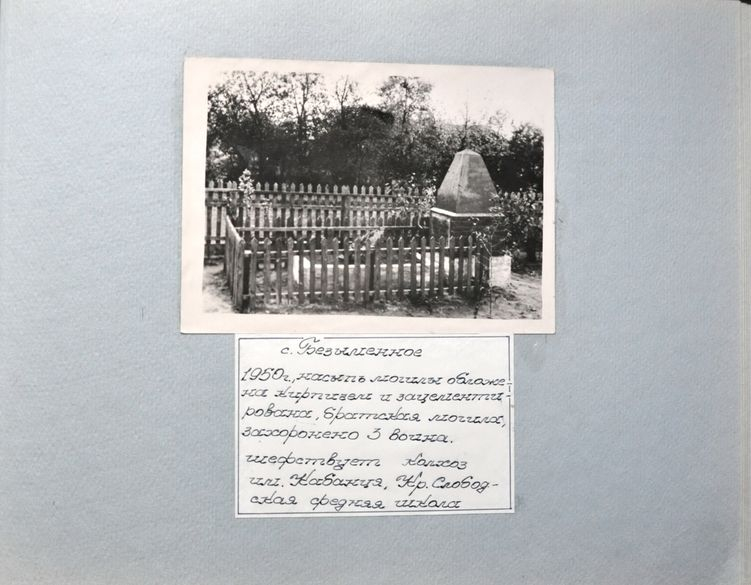 с. Безыменное
1950г., насыпь могилы обложе-
на кирпичем и зацементи-
рована, братская могила,
захоронено 3 воина.
шефствует колхоз
им. Кабанця, Кр. Слобод-
ская средняя школа